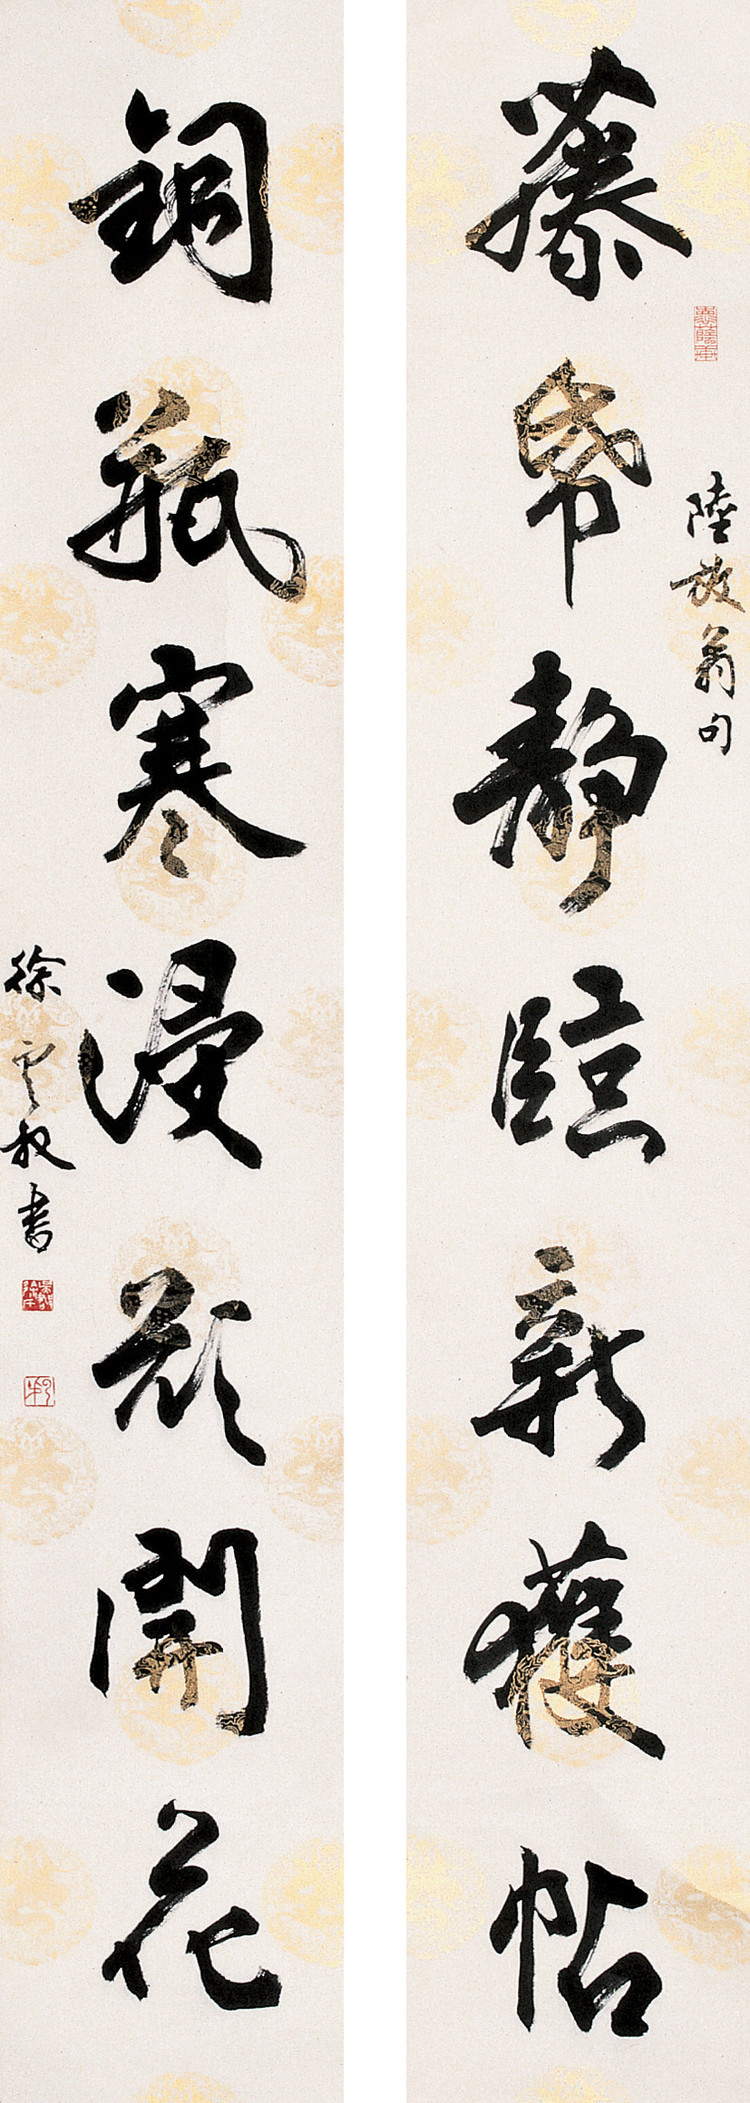 藤帋静臨新獲帖
陸放翁句
銅瓶寒浸欲開花
徐雲叔書